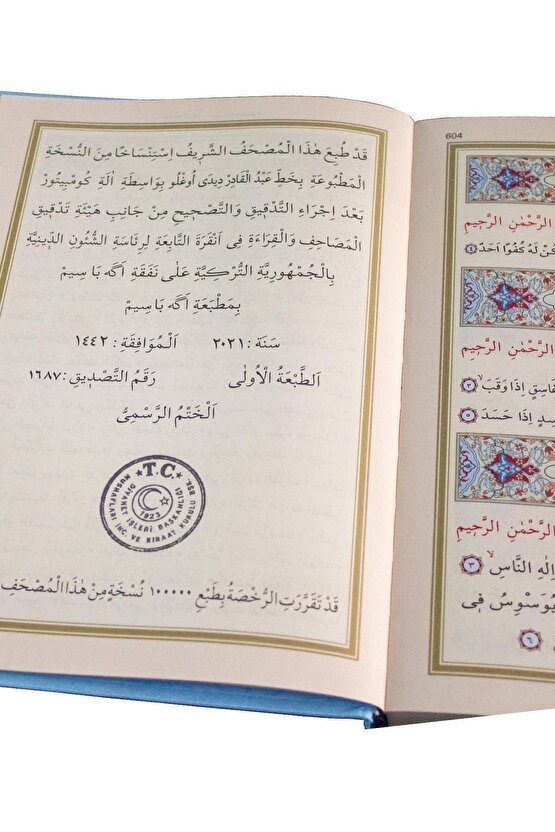 قَدْ طُبِعَ هٰذَا الْمُصْحَفُ الشَّرِيفُ اِسْتِنْسَاخًا مِنَ النُّسْخَةِ
الْمَطْبُوعَةِ بِخَطِّ عَبْدُ الْقَادِرْ دِيدَى أُوغْلُو بِوَاسِطَةِ اٰلَةِ كُومْبِيتُورْ
بَعْدَ اِجْرَاءِ التَّدْقِيقِ وَالتَّصْحِيحِ مِنْ جَانِبِ هَيْئَةِ تَدْقِيقِ
الْمَصَاحِفِ وَالْقِرَاءَةِ فِى اَنْقَرَةَ التَّابِعَةِ لِرِئَاسَةِ الشُّئُونِ الدِّينِيَّةِ
بِالْجُمْهُورِيَّةِ التُّرْكِيَّةِ عَلٰى نَفَقَةِ اَگَه بَاسِيمْ
بِمَطْبَعَةِ اَگَه بَاسِيمْ
سَنَة : ٢٠٢١ اَلْمُوَافِقَةِ : ١٤٤٢
اَلطَّبْعَةُ الْاُولٰى رَقَمُ التَّصْدِيقِ : ١٦٨٧
اَلْخَتْمُ الرَّسْمِىُّ
T.C.
DİYANET İŞLERİ BAŞKANLIĞI
MUSHAFLARI İNC. VE KIRAAT KURULU BŞK.
1923
قَدْ تَقَرَّرَتِ الرُّخْصَةُ بِطَبْعِ ١٠٠٠٠٠ نُسْخَةٍ مِنْ هٰذَا الْمُصْحَفِ
604
الرَّحْمٰنِ الرَّحِيمِ
لَهُ كُفُوًا اَحَدٌ ٤
الرَّحْمٰنِ الرَّحِيمِ
غَاسِقٍ اِذَا وَقَبَ ٣
اِذَا حَسَدَ ٥
الرَّحْمٰنِ الرَّحِيمِ
اِلٰهِ النَّاسِ ٣
يُوَسْوِسُ فِى
٦